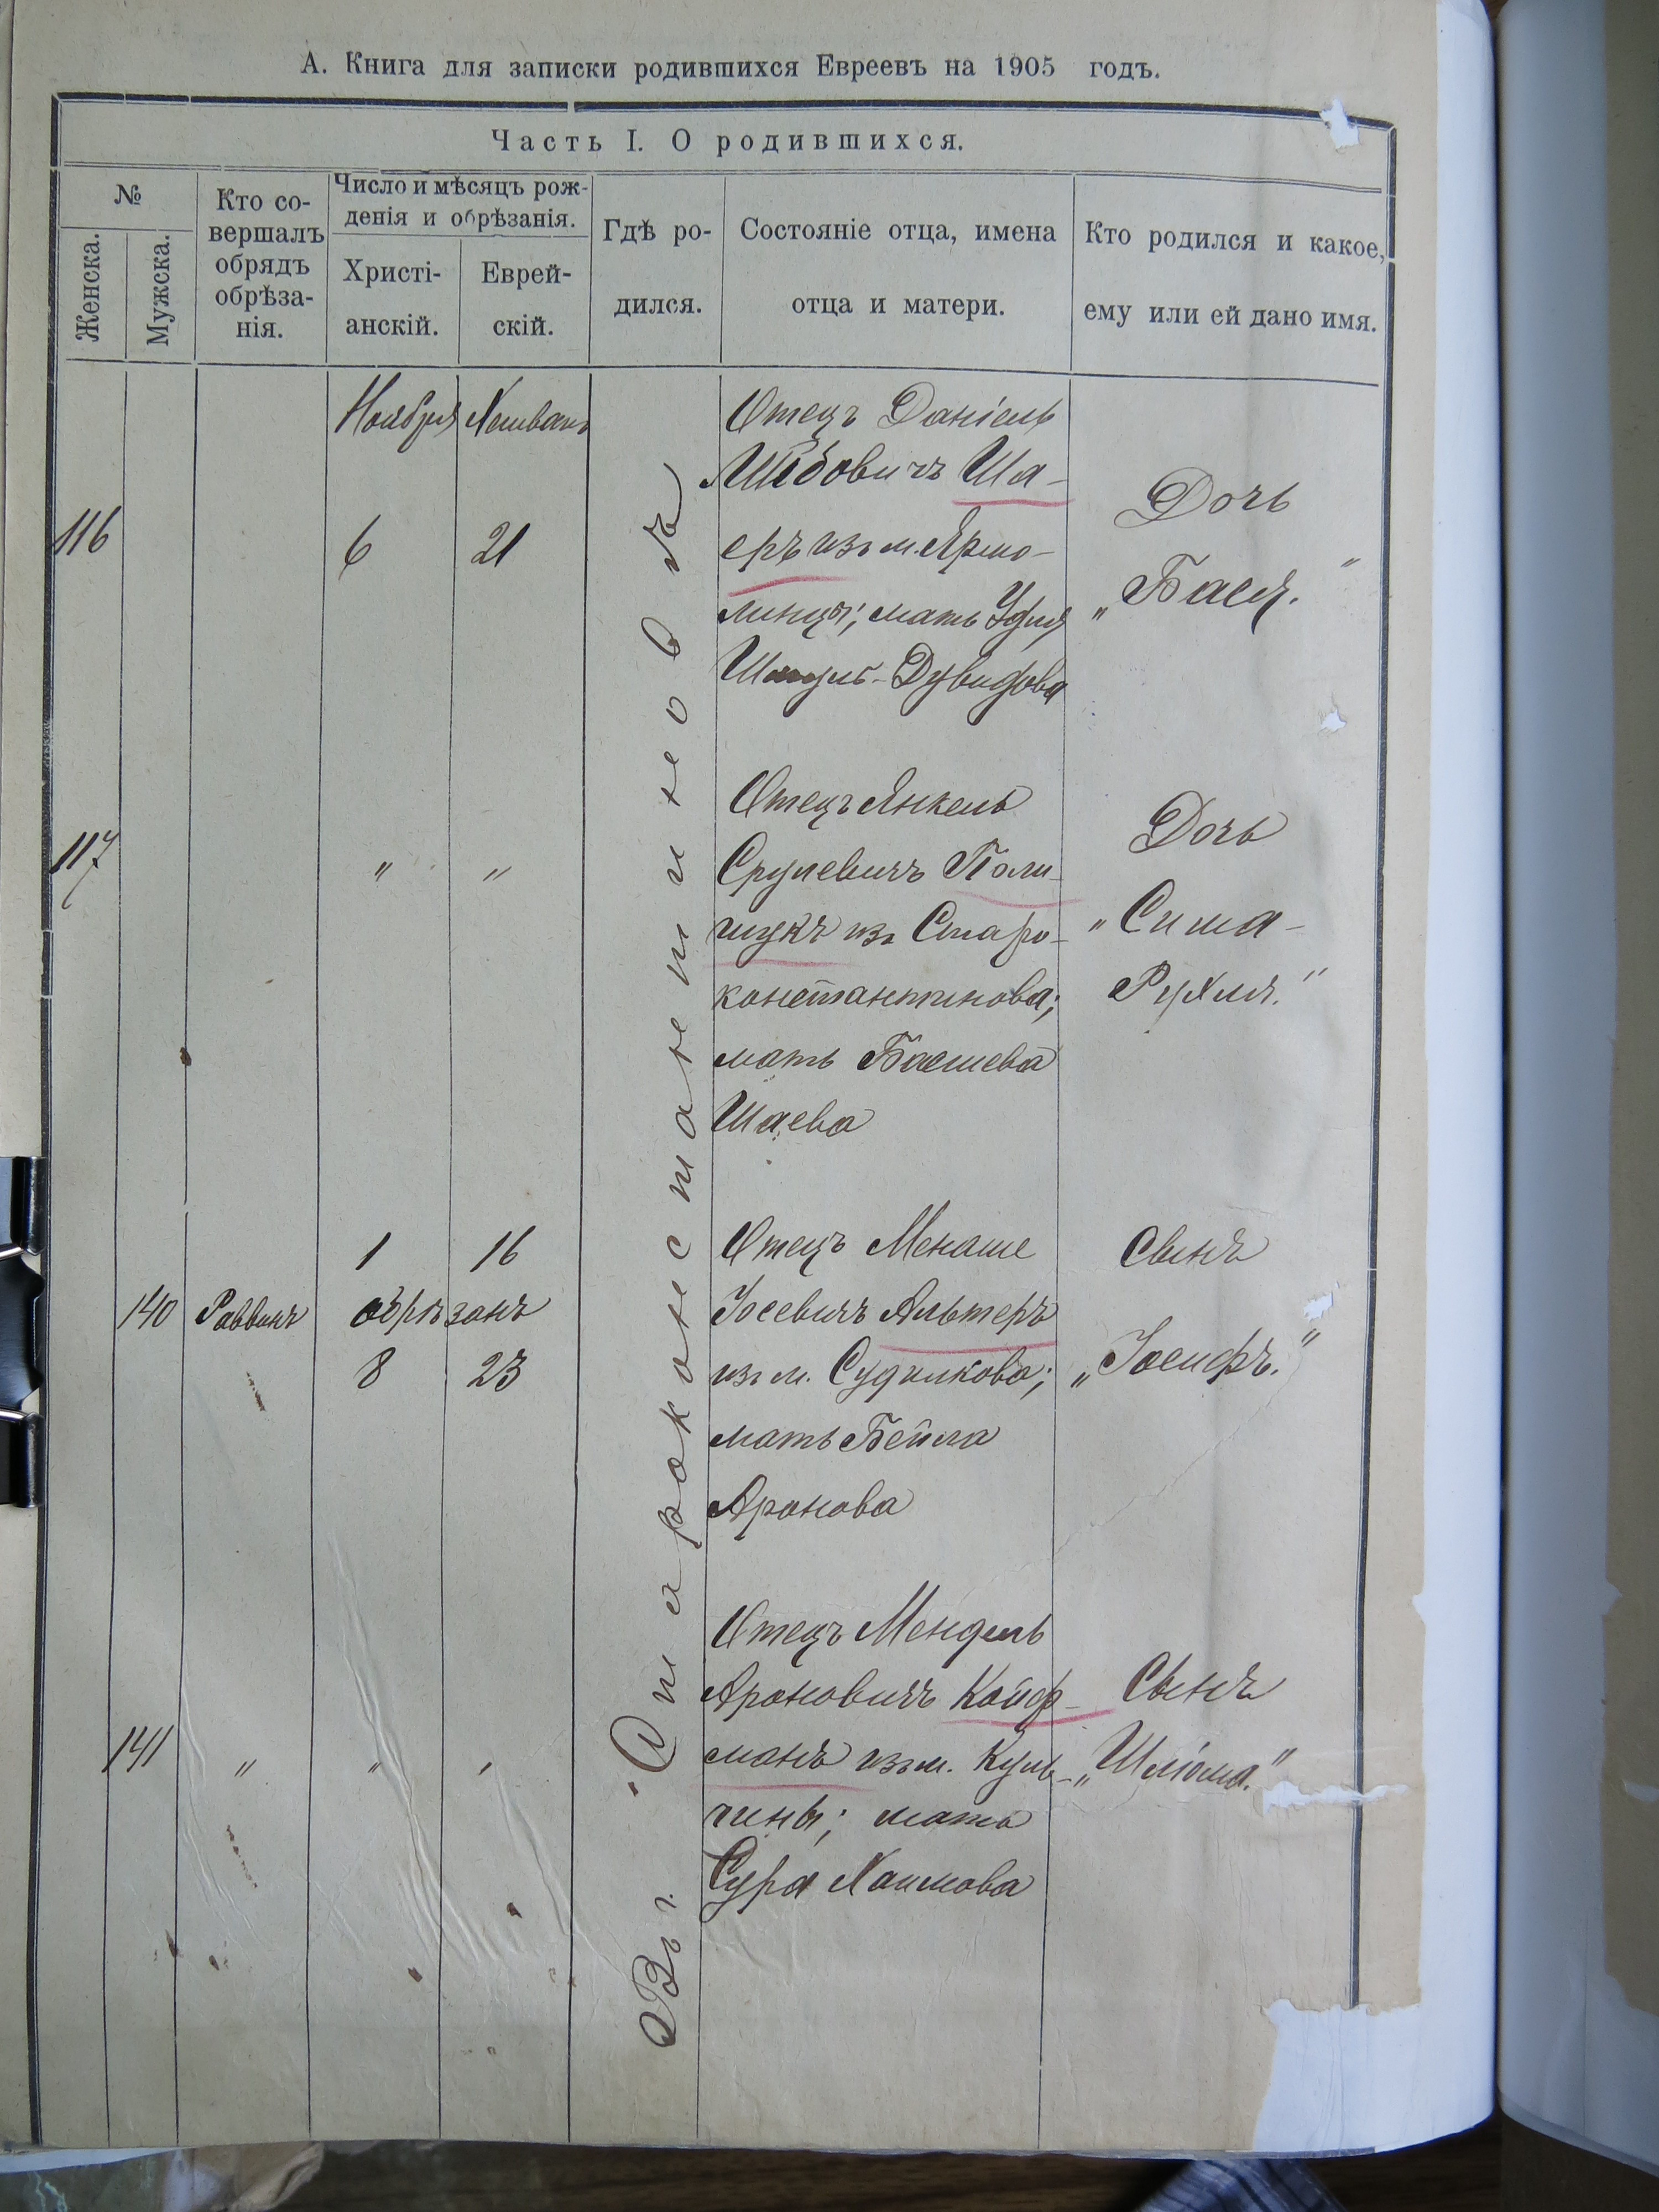 А. Книга для записки родившихся Евреевъ на 1905 годъ.
Часть I. О родившихся.
№
Женска.
Мужска.
Кто со-
вершалъ
обрядъ
обрѣза-
нія.
Число и мѣсяцъ рож-
денія и обрѣзанія.
Христі-
анскій.
Еврей-
скій.
Гдѣ ро-
дился.
Состояніе отца, имена
отца и матери.
Кто родился и какое,
ему или ей дано имя.
Въ г. Староконстантиновѣ
Ноября Хешванъ
116 6 21
Отецъ Даніель
Ша-
еръ изъ м. Ярмо-
линцы; мать Удля
Шмуль-Дувидова
Дочь
„Бася.“
117 " "
Отецъ Янкель
Срулевичъ Поли-
щукъ изъ Старо-
константинова;
мать Басшева
Шаева
Дочь
„Сима-
Рухля.“
140 Раввинъ
1 16
обрѣзанъ
8 23
Отецъ Менаше
Іосевичъ Альтеръ
изъ м. Судилкова;
мать Бейла
Аронова
Сынъ
„Іосифъ.“
141 " " "
Отецъ Мендель
Ароновичъ Койф-
манъ изъ м. Куль-
чины; мать
Сура Хаимова
Сынъ
„Шлёма.“